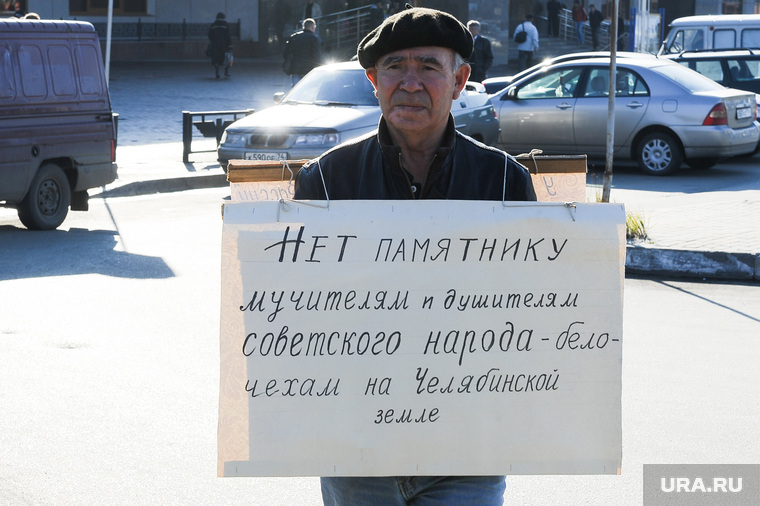 Нет памятнику
мучителям и душителям
советского народа - бело-
чехам на Челябинской
земле
URA.RU